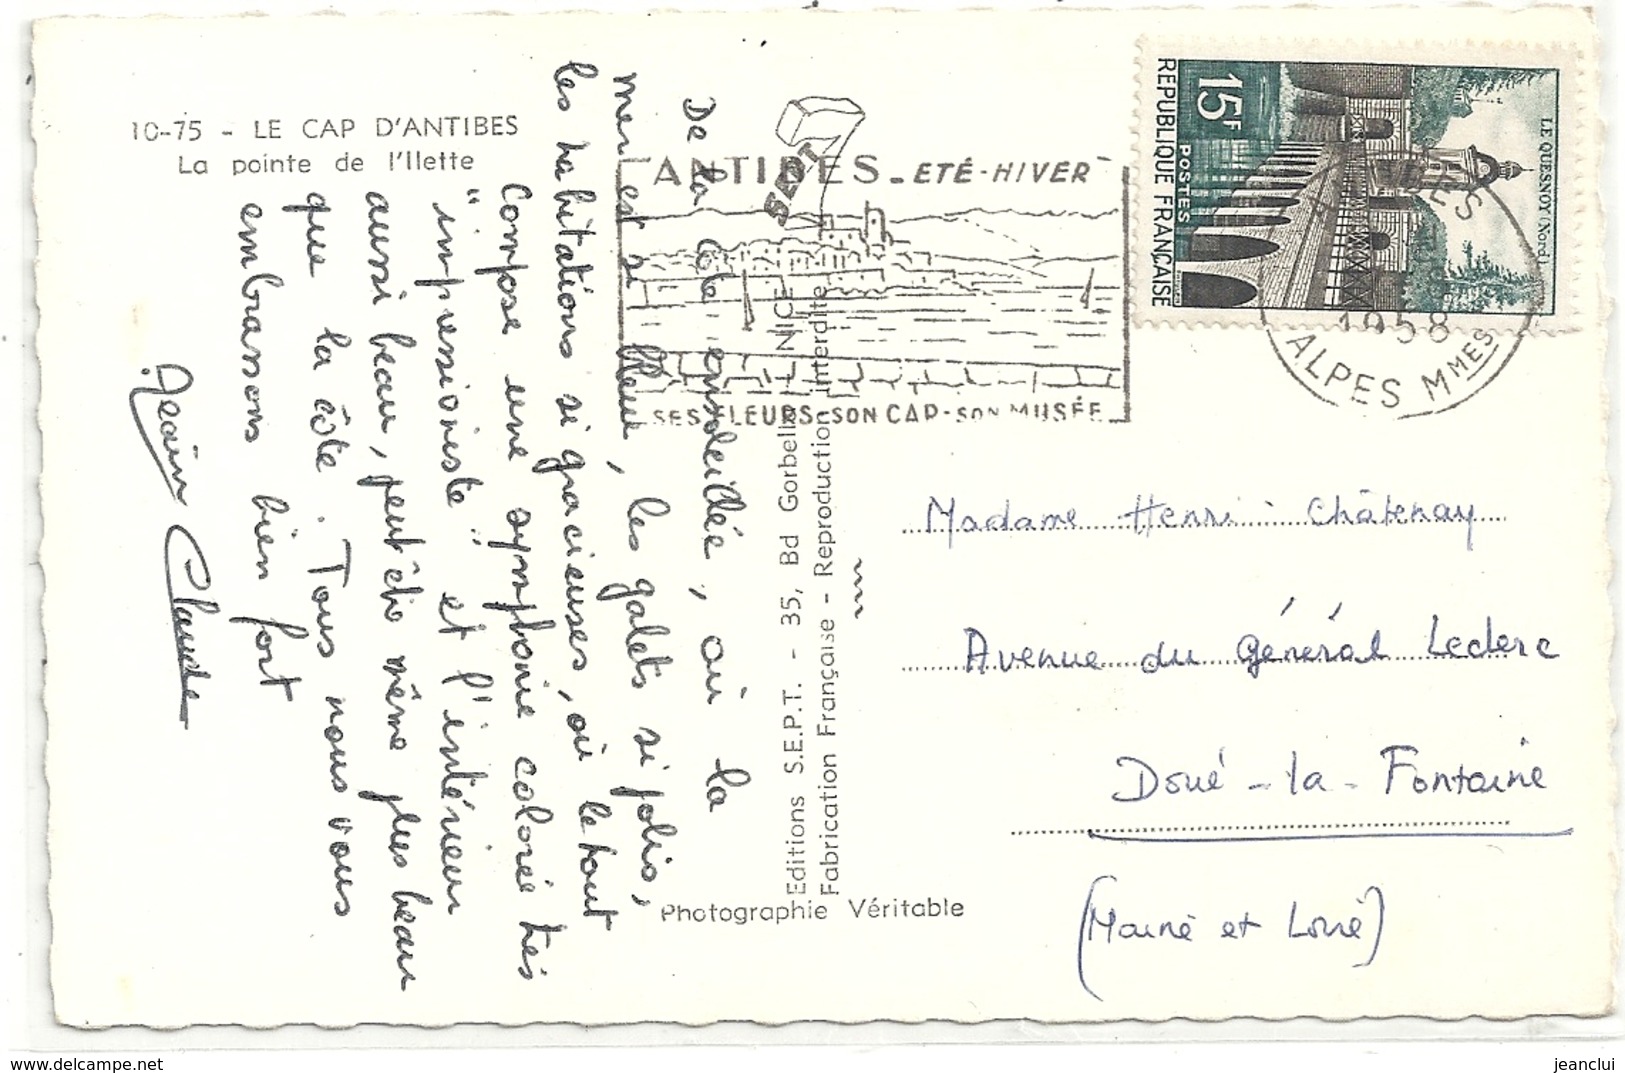 10-75 - LE CAP D'ANTIBES
La pointe de l'Ilette
De la côte ensoleillée, où la
mer est si bleue, les galets si jolis,
les habitations si gracieuses, où le tout
compose une symphonie colorée très
"impressionniste" et l'intérieur
aussi beau, peut être même plus beau
que la côte. Tous nous vous
embrassons bien fort
Claude
SEPT
ANTIBES - ETÉ - HIVER
SES FLEURS - SON CAP - SON MUSÉE
Editions S.E.P.T. - 35, Bd Gorbella NICE
Fabrication Française - Reproduction interdite
Photographie Véritable
REPUBLIQUE FRANÇAISE
POSTES
15F
LE QUESNOY (Nord)
1958
ALPES MMES
Madame Henri Châtenay
Avenue du Général Leclerc
Doué-la-Fontaine
(Maine et Loire)
jeanclui